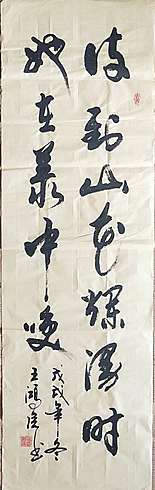 待到山花爛漫时
她在叢中笑
戊戌年冬
王鴻 书